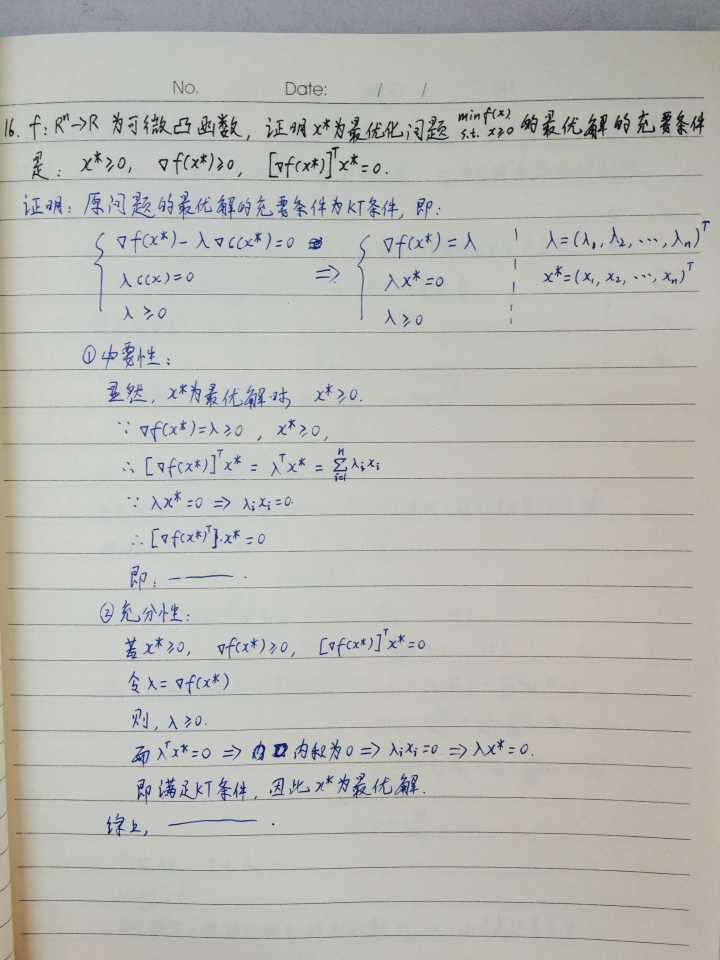 No. Date: / /
16. f: Rⁿ→R 为可微凸函数, 证明 x*为最优化问题 min f(x) s.t. x≥0 的最优解的充要条件
是: x*≥0, ∇f(x*)≥0, [∇f(x*)]ᵀx*=0.
证明: 原问题的最优解的充要条件为KT条件, 即:
{ ∇f(x*)-λ∇c(x*)=0 ∇f(x*)=λ λ=(λ₁, λ₂, ⋯, λₙ)ᵀ
λc(x)=0 ⇒ { λx*=0 x*=(x₁, x₂, ⋯, xₙ)ᵀ
λ≥0 λ≥0
①必要性:
显然, x*为最优解时 x*≥0.
∵ ∇f(x*)=λ≥0, x*≥0,
∴ [∇f(x*)]ᵀx* = λᵀx* = ∑ⁿᵢ₌₁ λᵢxᵢ
∵ λx*=0 ⇒ λᵢxᵢ=0.
∴ [∇f(x*)ᵀ]·x*=0
即: ——— .
②充分性:
若x*≥0, ∇f(x*)≥0, [∇f(x*)]ᵀx*=0
令λ=∇f(x*)
则, λ≥0.
而λᵀx*=0 ⇒ 内积为0 ⇒ λᵢxᵢ=0 ⇒ λx*=0.
即满足KT条件, 因此x*为最优解.
综上, ——— .